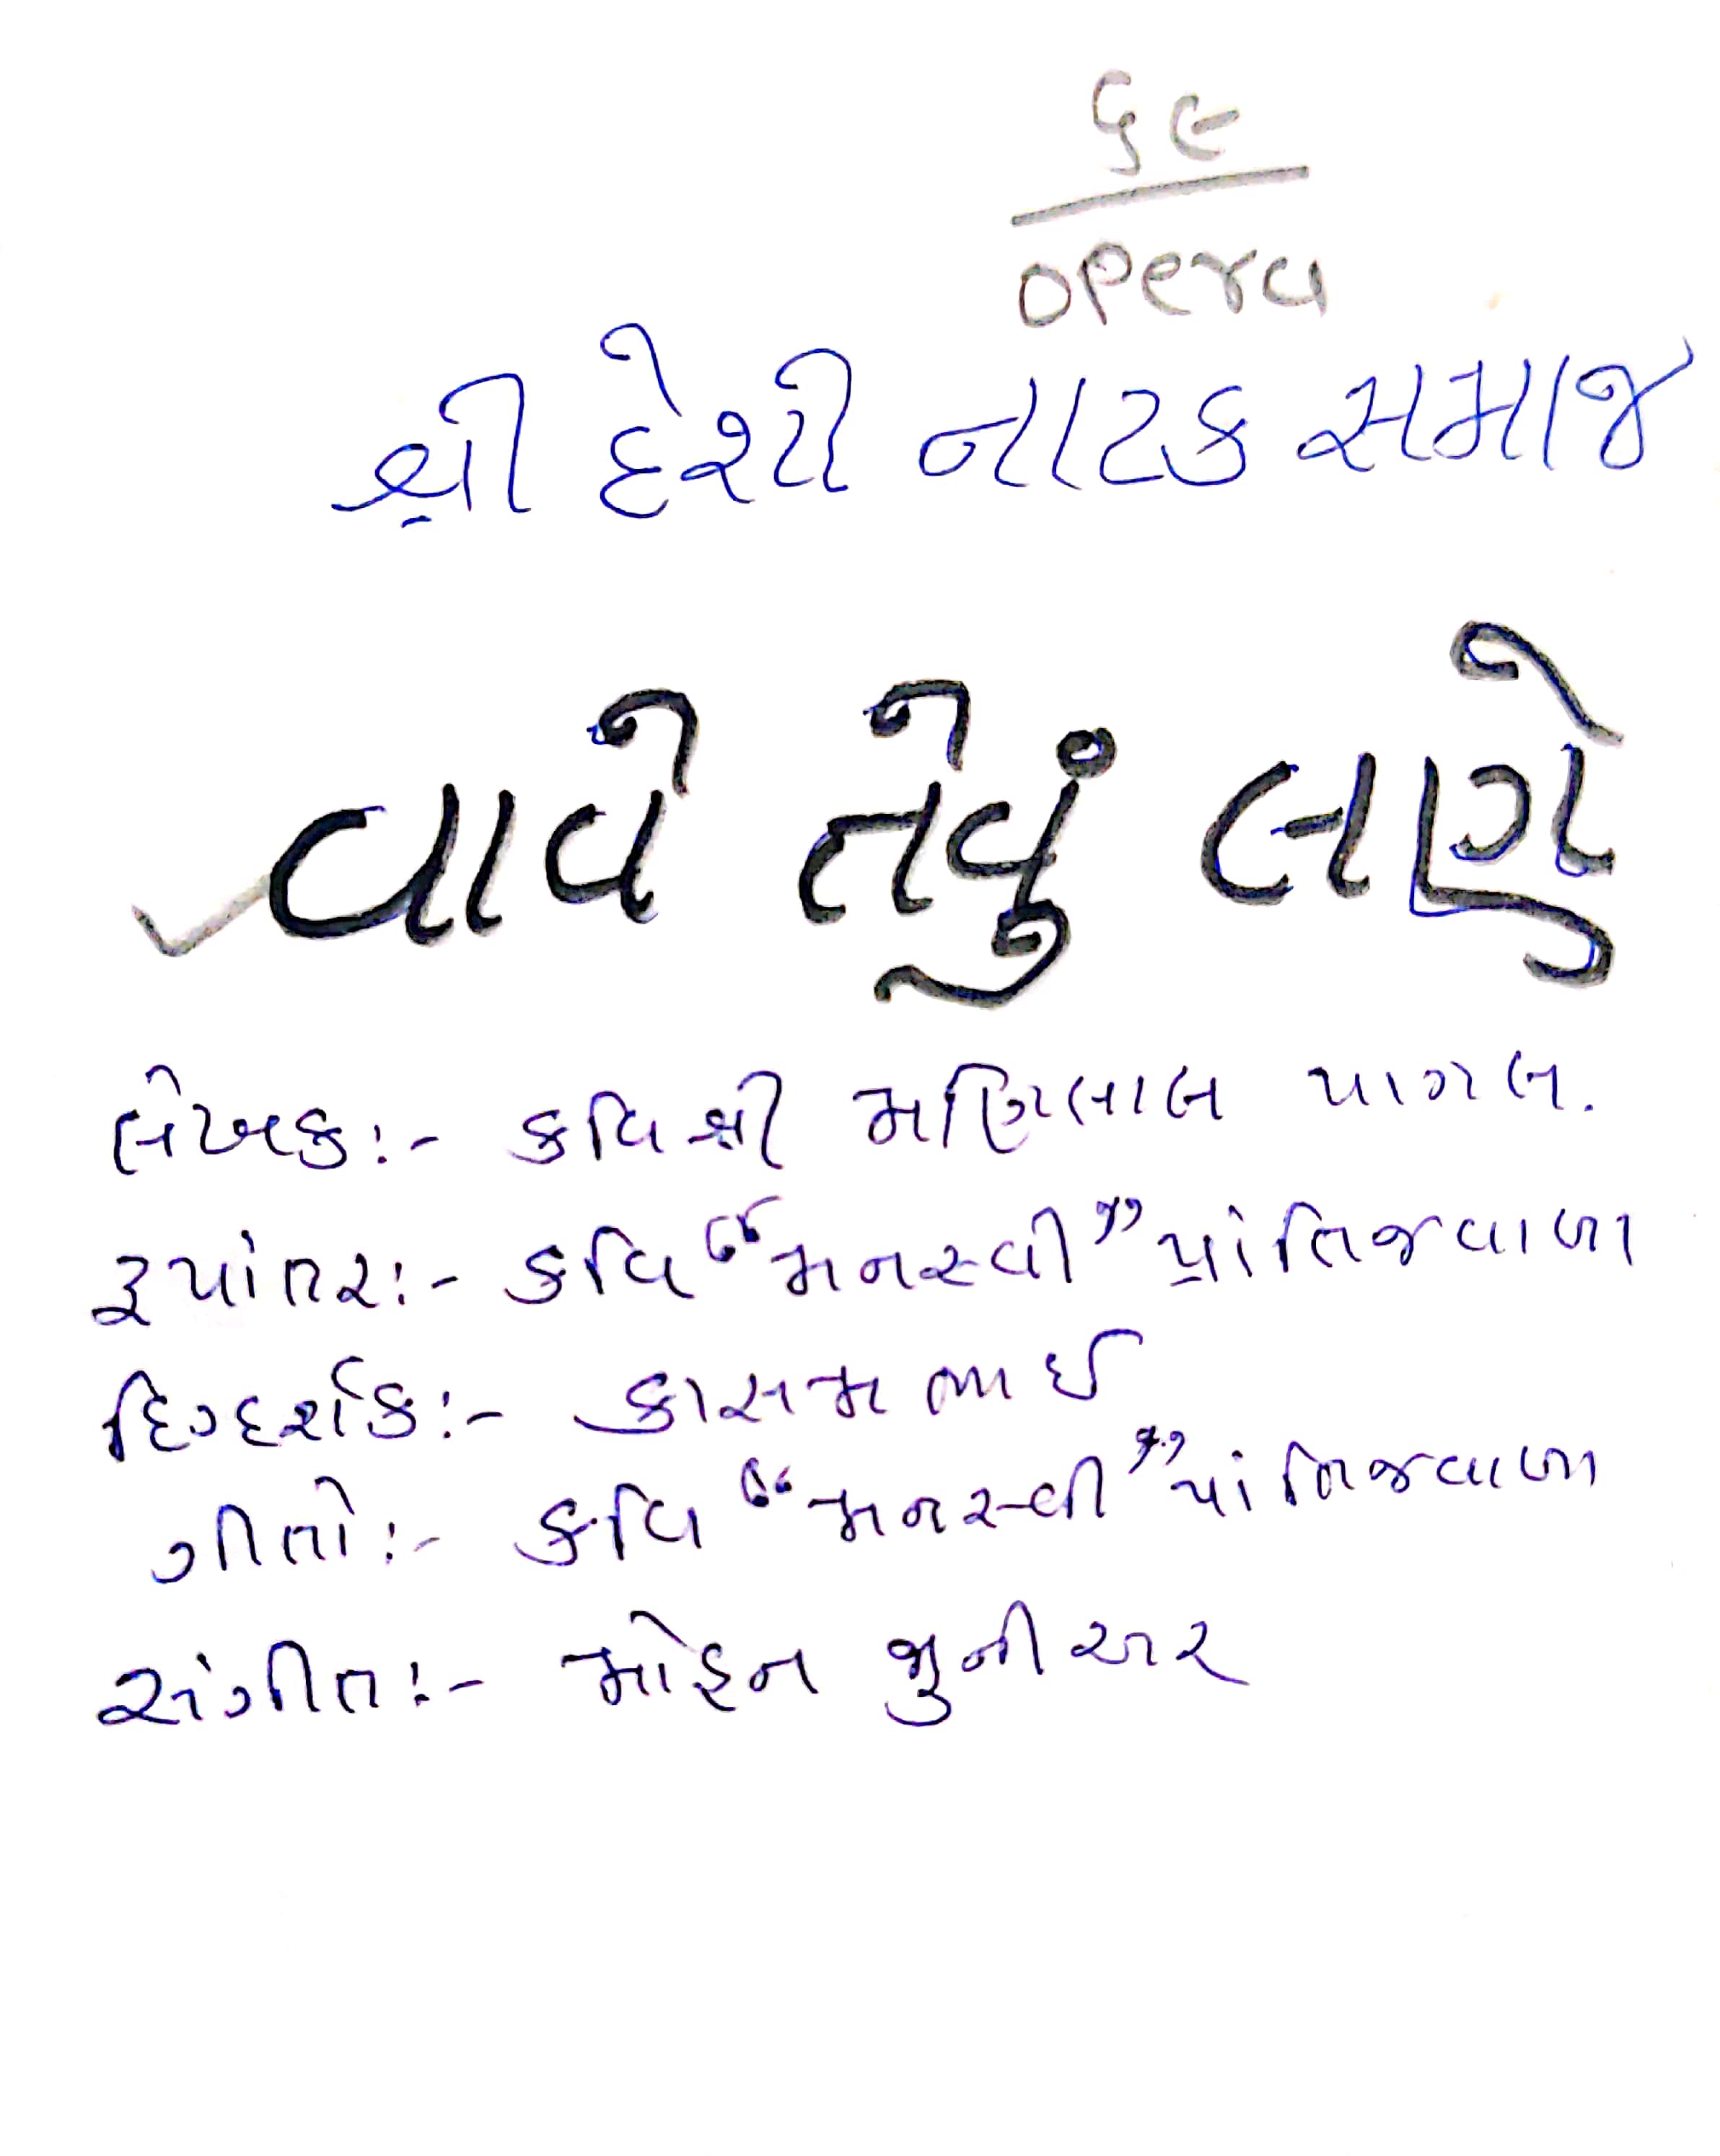 ૬૯
opera
શ્રી દેશી નાટક સમાજ
વાવે તેવું લણે
લેખક:- કવિશ્રી મણિલાલ પાગલ.
રૂપાંતર:- કવિ "મનસ્વી" પ્રાંતિજવાળા
દિગ્દર્શક:- કાસમભાઈ
ગીતો:- કવિ "મનસ્વી" પ્રાંતિજવાળા
સંગીત:- મોહન જુનીઅર